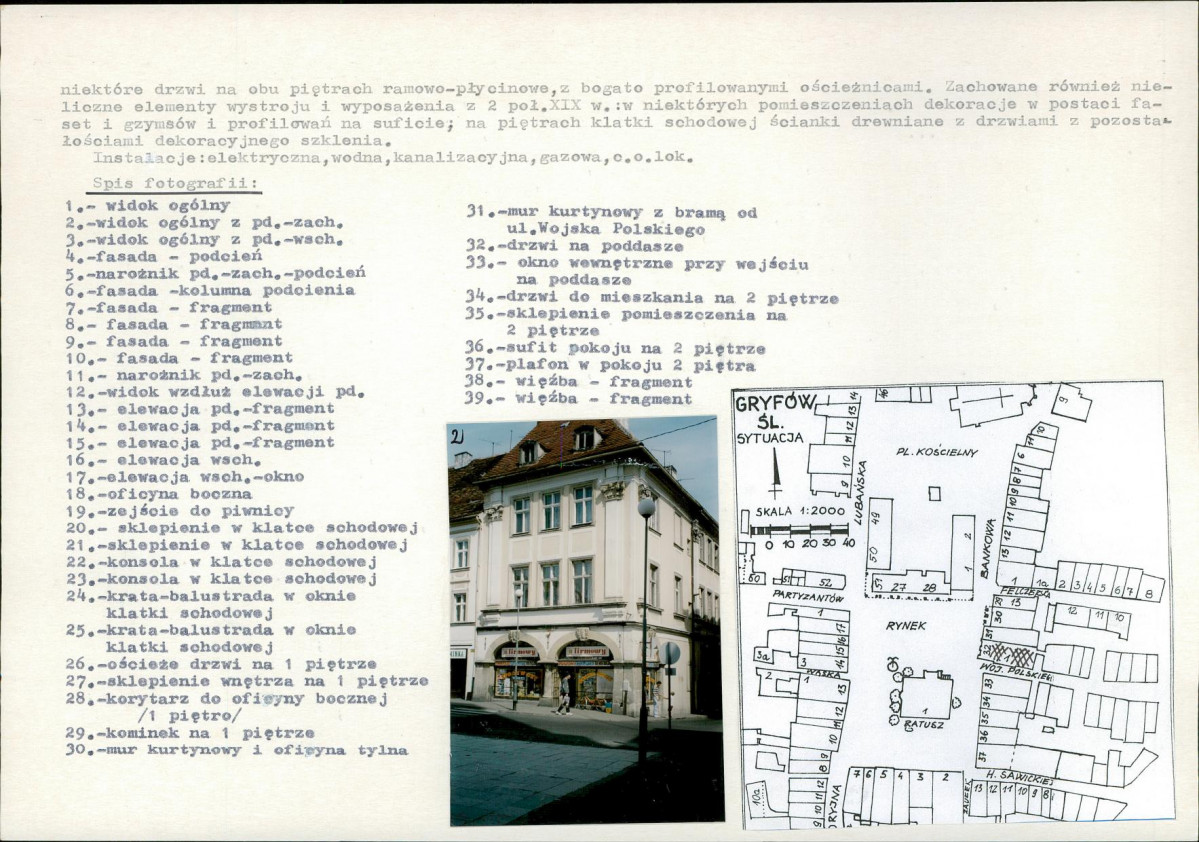 niektóre drzwi na obu piętrach ramowo-płycinowe,z bogato profilowanymi ościeżnicami. Zachowane również nie-
liczne elementy wystroju i wyposażenia z 2 poł.XIX w.:w niektórych pomieszczeniach dekoracje w postaci fa-
set i gzymsów i profilowań na suficie; na piętrach klatki schodowej ścianki drewniane z drzwiami z pozosta-
łościami dekoracyjnego szklenia.
Instalacje:elektryczna,wodna,kanalizacyjna,gazowa,c.o.lok.
Spis fotografii:
1.- widok ogólny
2.-widok ogólny z pd.-zach.
3.-widok ogólny z pd.-wsch.
4.-fasada - podcień
5.-narożnik pd.-zach.-podcień
6.-fasada -kolumna podcienia
7.-fasada - fragment
8.- fasada - fragment
9.- fasada - fragment
10.- fasada - fragment
11.- narożnik pd.-zach.
12.-widok wzdłuż elewacji pd.
13.- elewacja pd.-fragment
14.- elewacja pd.-fragment
15.- elewacja pd.-fragment
16.- elewacja wsch.
17.-elewacja wsch.-okno
18.-oficyna boczna
19.-zejście do piwnicy
20.- sklepienie w klatce schodowej
21.-sklepienie w klatce schodowej
22.-konsola w klatce schodowej
23.-konsola w klatce schodowej
24.-krata-balustrada w oknie
klatki schodowej
25.-krata-balustrada w oknie
klatki schodowej
26.-ościeże drzwi na 1 piętrze
27.-sklepienie wnętrza na 1 piętrze
28.-korytarz do oficyny bocznej
/1 piętro/
29.-kominek na 1 piętrze
30.-mur kurtynowy i oficyna tylna
31.-mur kurtynowy z bramą od
ul.Wojska Polskiego
32.-drzwi na poddasze
33.- okno wewnętrzne przy wejściu
na poddasze
34.-drzwi do mieszkania na 2 piętrze
35.-sklepienie pomieszczenia na
2 piętrze
36.-sufit pokoju na 2 piętrze
37.-plafon w pokoju 2 piętra
38.- więźba - fragment
39.- więźba - fragment
2
GRYFÓW
ŚL.
SYTUACJA
SKALA 1:2000
0 10 20 30 40
PL. KOŚCIELNY
LUBAŃSKA
BANKOWA
49
50
2
1
51 27 28
60
51 52
PARTYZANTÓW
RYNEK
WOJ. POLSKIEGO
1
RATUSZ
H. SAWICKIEJ
7 6 5 4 3 2
13 12 11 10 9 8
10a